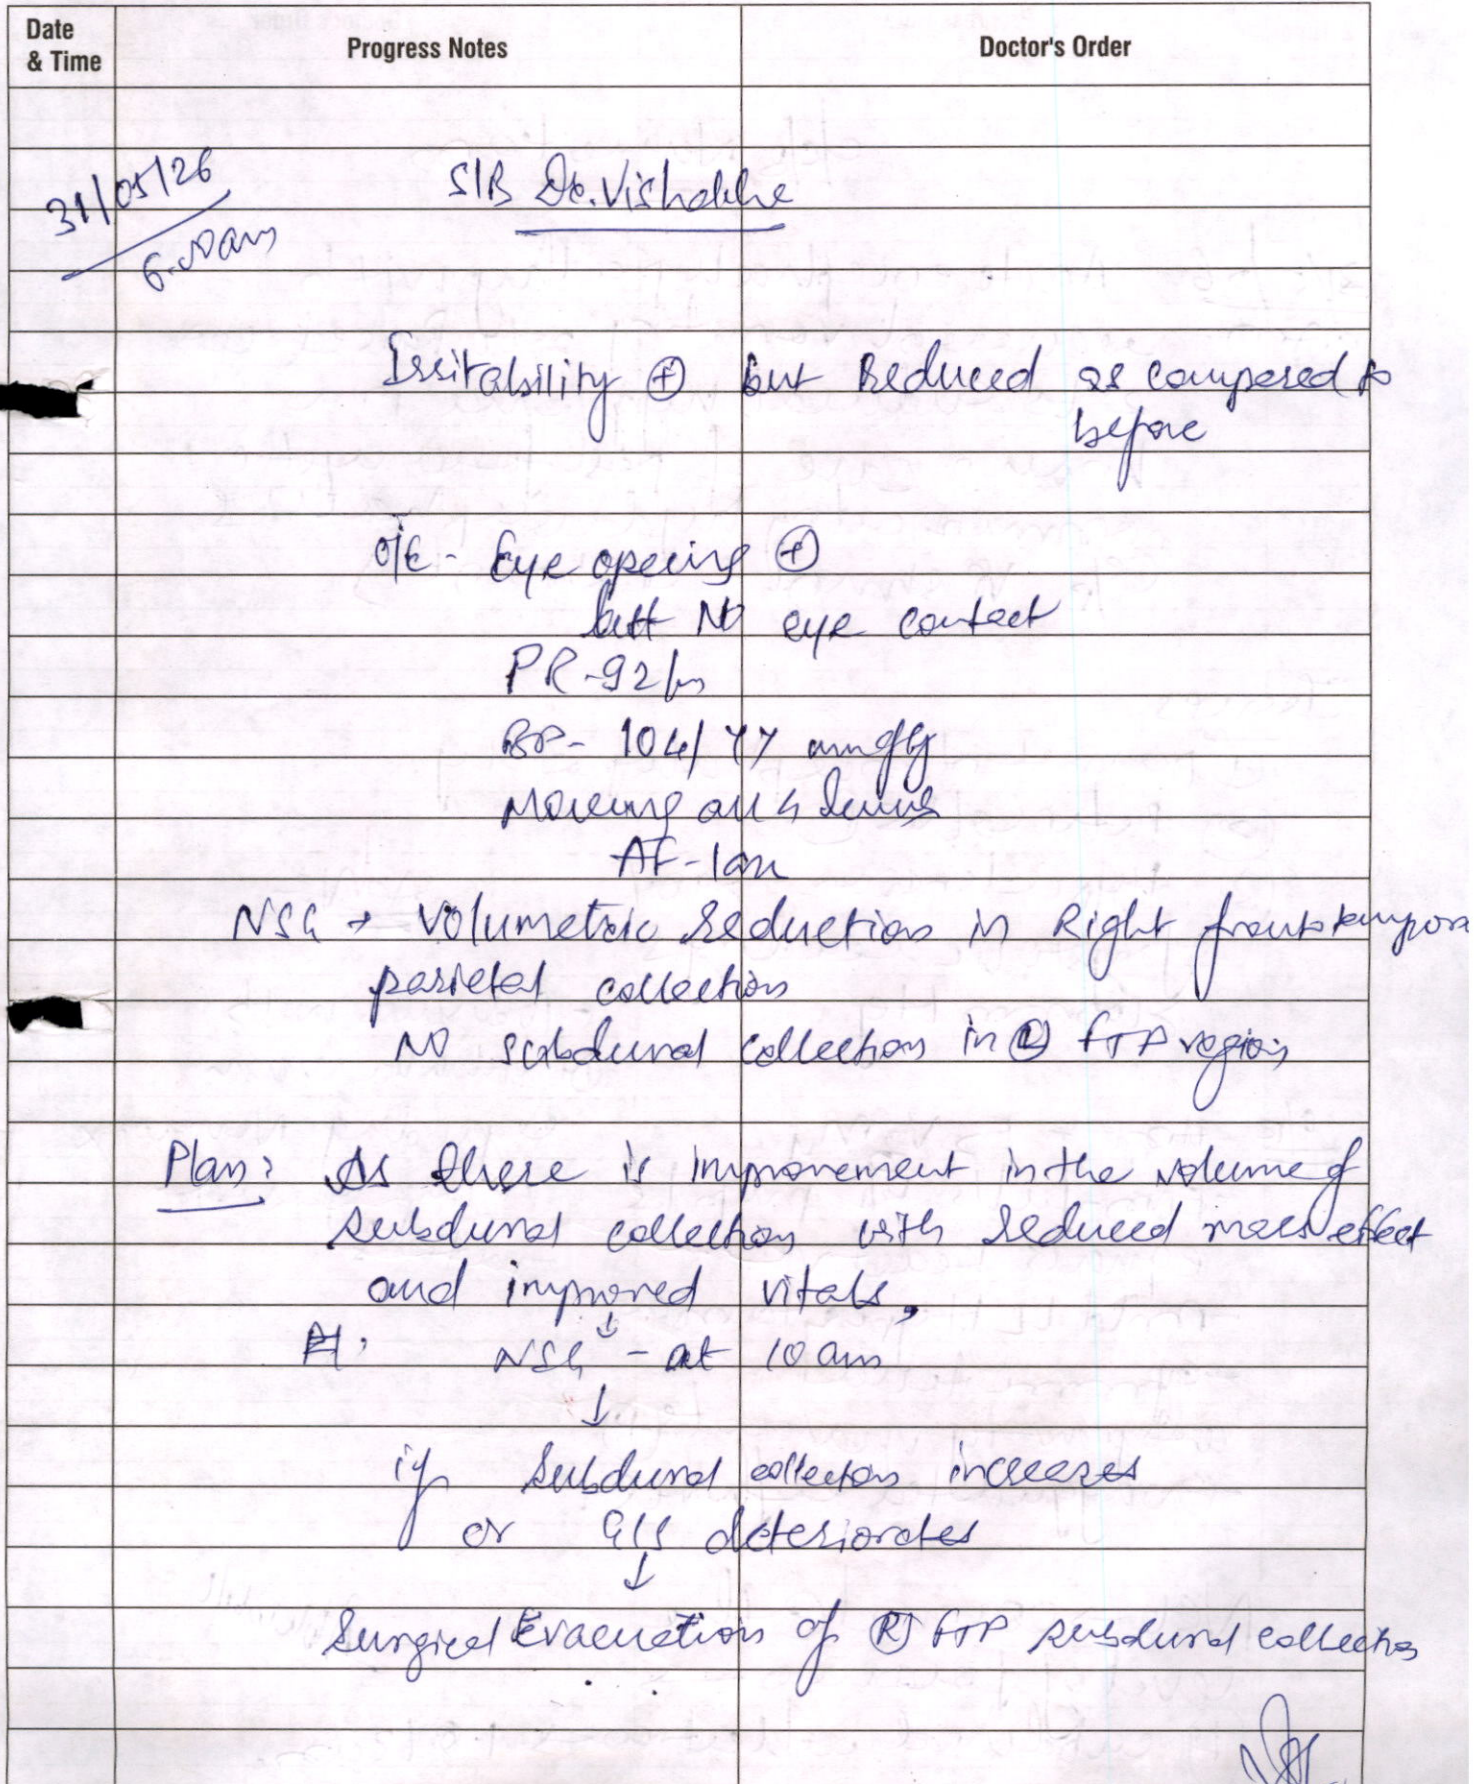 Date & Time Progress Notes Doctor's Order
31/05/26
6.00am
S/B Dr. Vishakha
Irritability ⊕ but Reduced as compared to
before
O/E - Eye opening ⊕
but No eye contact
PR - 92/m
BP - 104/77 mmHg
Moving all 4 limbs
AF - lax
NSG → Volumetric reduction in Right frontotempora
parietal collection
No subdural collection in Ⓛ FTP region
Plan: As there is improvement in the volume of
subdural collection with reduced mass effect
and improved vitals,
↓
NSG - at 10 am
↓
if subdural collection increases
or GCS deteriorates
↓
Surgical Evacuation of Ⓡ FTP subdural collection